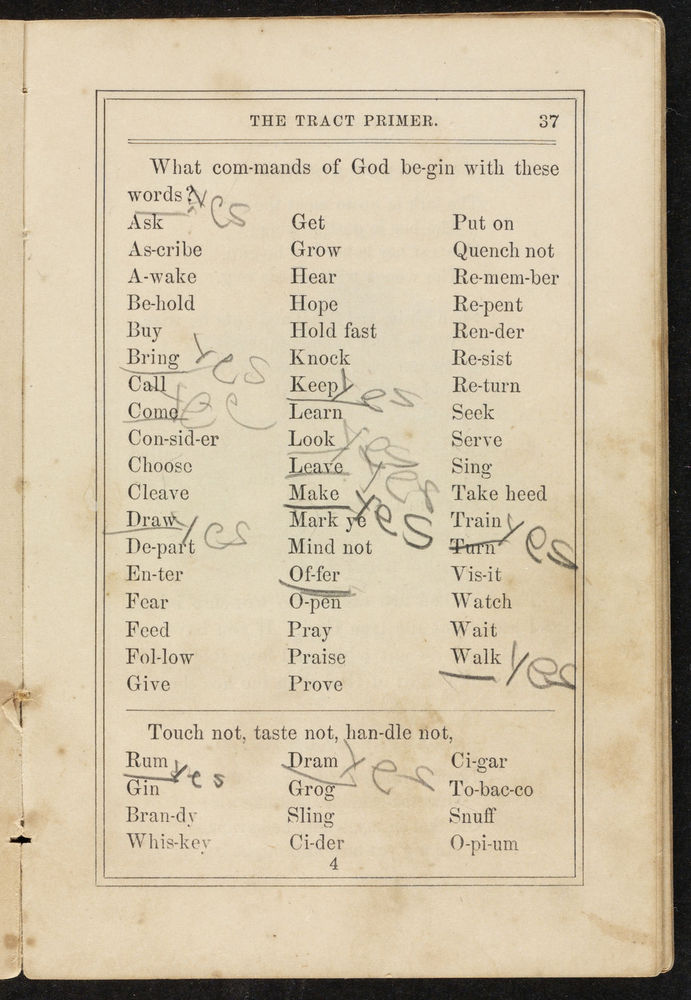 THE TRACT PRIMER. 37
What com-mands of God be-gin with these
words? yes
Ask Get Put on
As-cribe Grow Quench not
A-wake Hear Re-mem-ber
Be-hold Hope Re-pent
Buy Hold fast Ren-der
Bring yes Knock Re-sist
Call Keep yes Re-turn
Come yes Learn Seek
Con-sid-er Look yes Serve
Choose Leave yes Sing
Cleave Make yes Take heed
Draw yes Mark ye Train yes
De-part Mind not Turn
En-ter Of-fer Vis-it
Fear O-pen Watch
Feed Pray Wait
Fol-low Praise Walk yes
Give Prove
Touch not, taste not, han-dle not,
Rum yes Dram yes Ci-gar
Gin Grog To-bac-co
Bran-dy Sling Snuff
Whis-key Ci-der O-pi-um
4